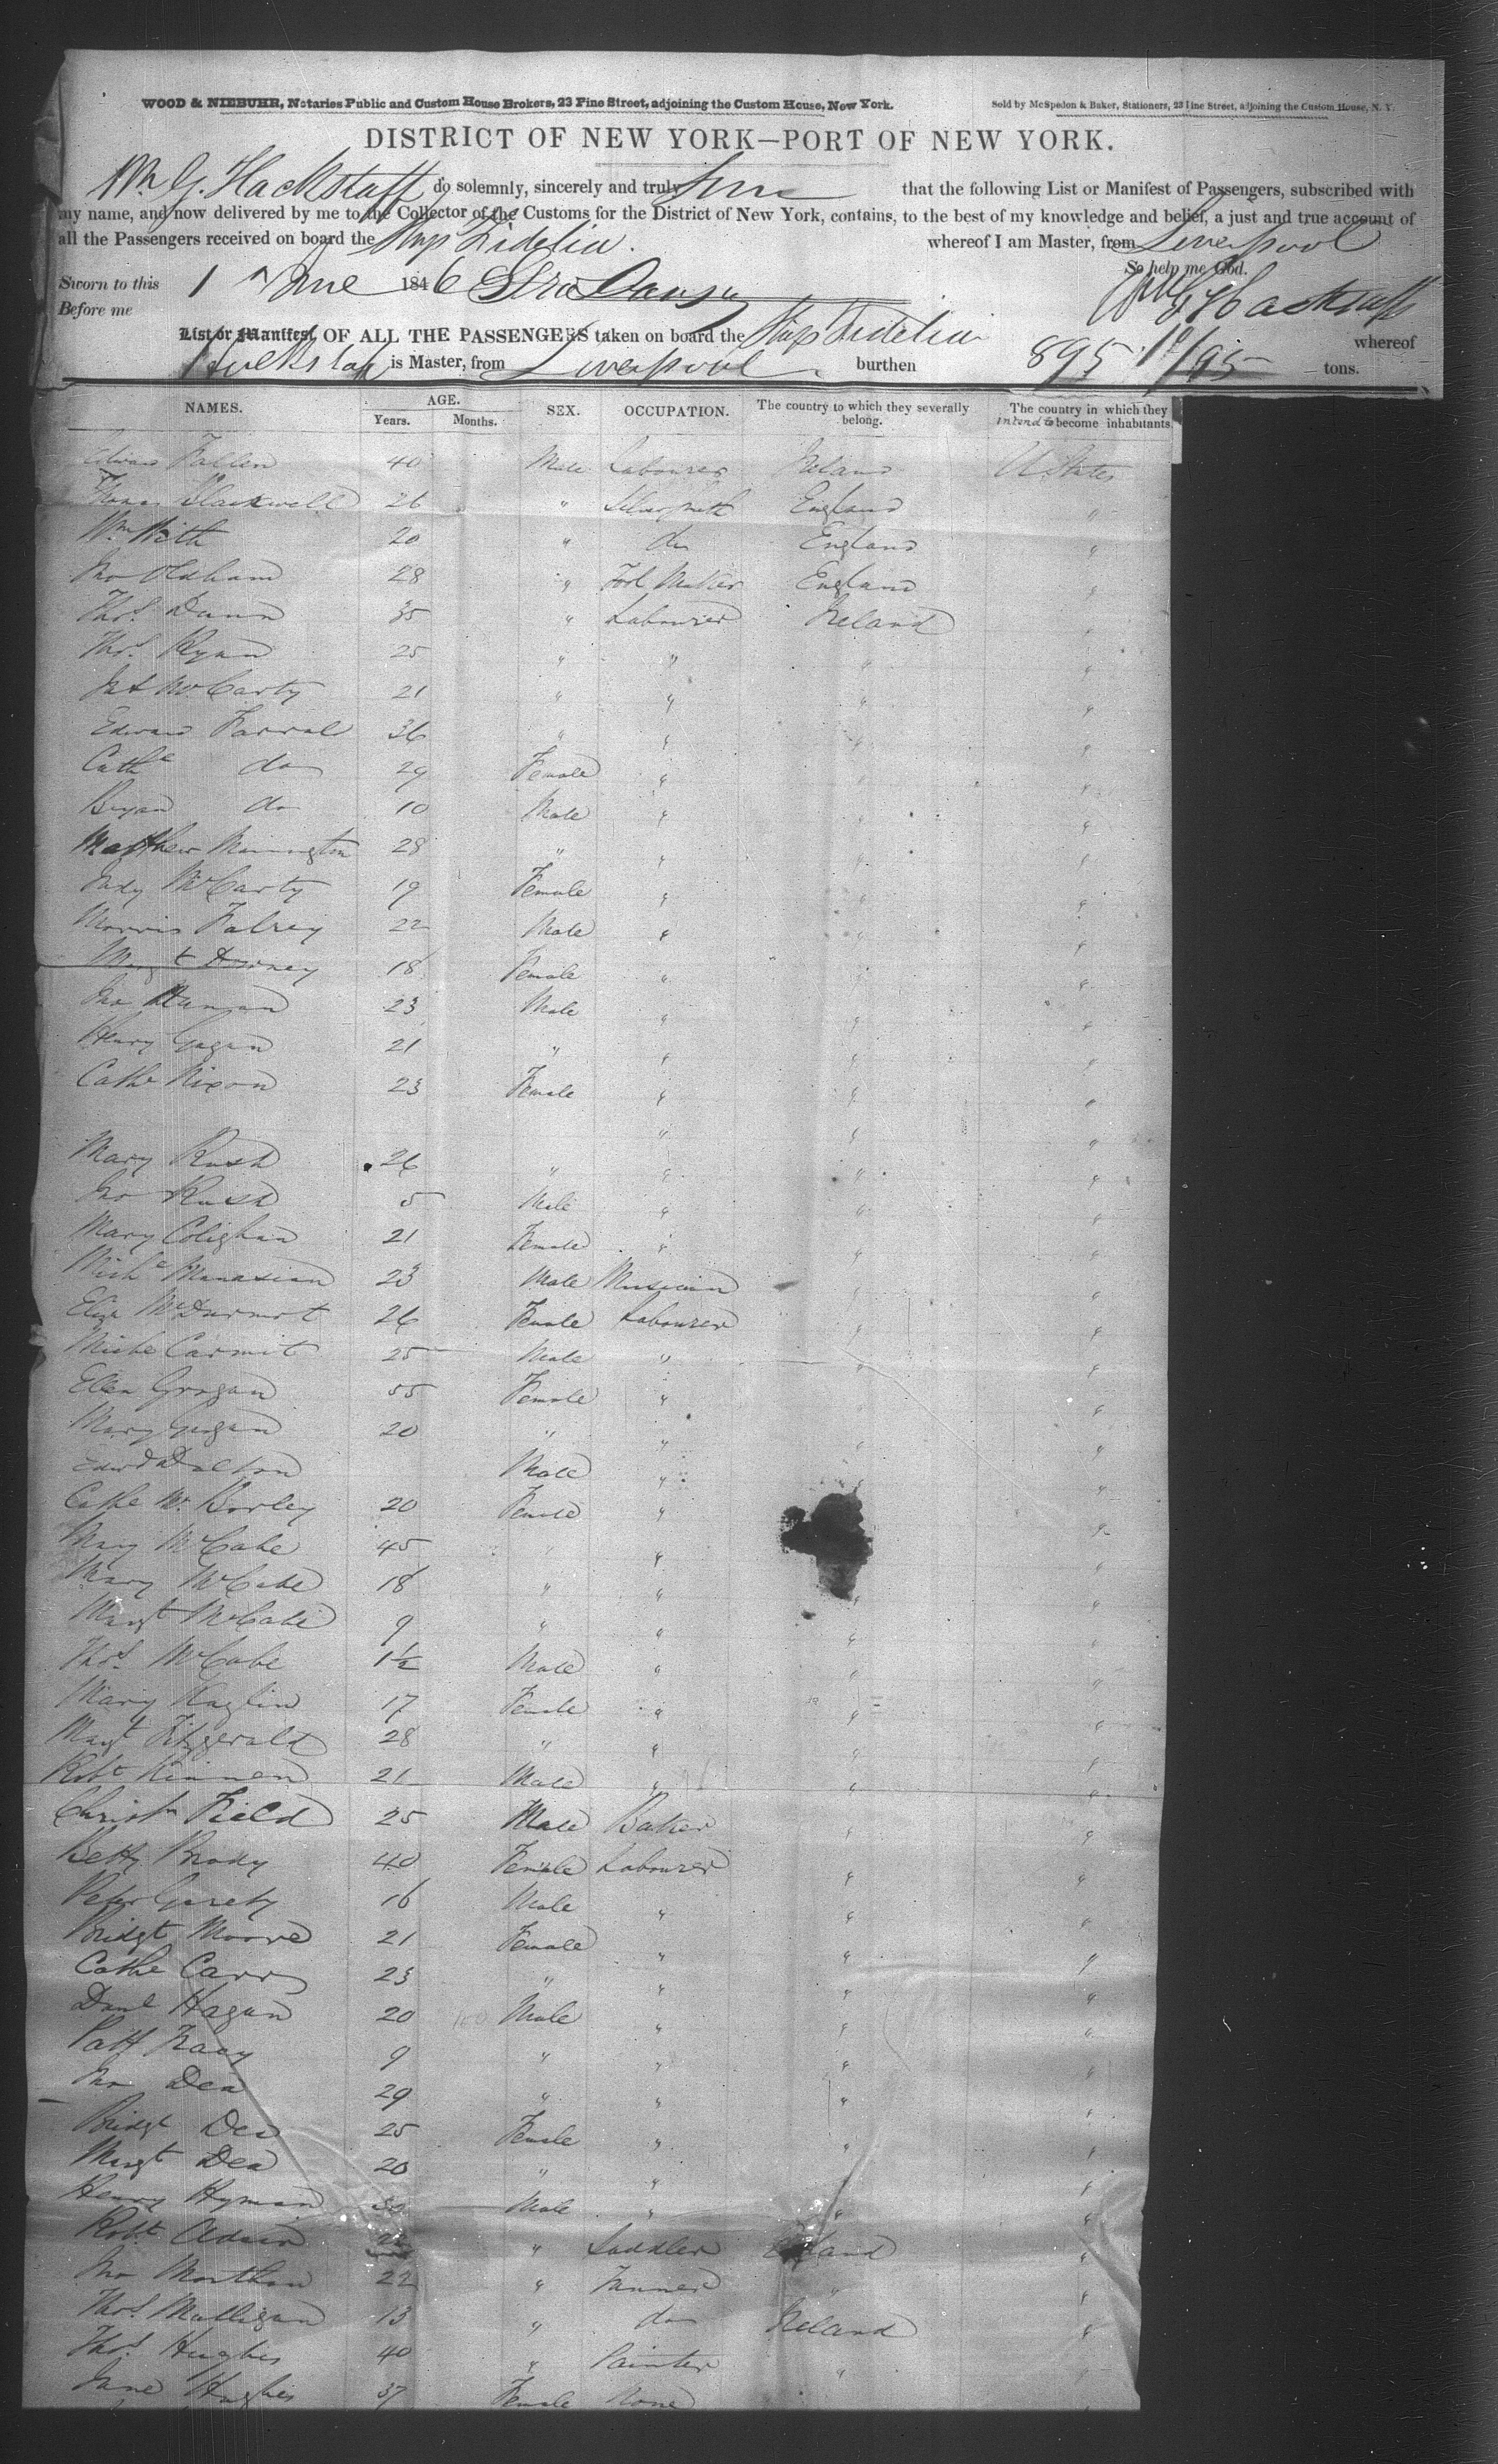 WOOD & NIEBUHR, Notaries Public and Custom House Brokers, 23 Pine Street, adjoining the Custom House, New York.
Sold by McSpedon & Baker, Stationers, 23 Pine Street, adjoining the Custom House, N. Y.
DISTRICT OF NEW YORK—PORT OF NEW YORK.
Wm G. Hackstaff do solemnly, sincerely and truly that the following List or Manifest of Passengers, subscribed with
my name, and now delivered by me to the Collector of the Customs for the District of New York, contains, to the best of my knowledge and belief, a just and true account of
all the Passengers received on board the Ship Fidelia. whereof I am Master, from Liverpool
So help me God.
Sworn to this 1 June 1846
Before me
Wm G Hackstaff
List or Manifest OF ALL THE PASSENGERS taken on board the Ship Fidelia whereof
Hackstaff is Master, from Liverpool burthen 895 18/95 tons.
NAMES. AGE. SEX. OCCUPATION. The country to which they severally belong. The country in which they intend to become inhabitants
Years. Months.
Edward Fallen 40 Male Labourer Ireland U. States
Thomas Blackwell 26 " Silversmith England "
Wm 20 " do England "
Jno Oldham 28 " England "
Thos. Dunn 35 " Labourer Ireland "
Thos. Ryan 25 " " " "
McCarty 21 " " " "
Edward Farral 36 " " " "
Cathe do 29 Female " " "
Bryan do 10 Male " " "
Matthew 28 " " " "
Judy McCarty 19 Female " " "
Morris 22 Male " " "
Margt 18 Female " " "
Jno 23 Male " " "
Henry Gagan 21 " " " "
Cathe Nixon 23 Female " " "
" " "
Mary Rush 26 " " " "
Jno Rush 5 Male " " "
Mary Colighan 21 Female " " "
Miche 23 Male Musician " "
Eliza McDurmot 26 Female Labourer " "
Miche Carmit 25 Male " " "
Ellen Grogan 55 Female " " "
Mary 20 " " " "
Edwd Dalton Male " " "
Cathe 20 Female " "
Mary McCabe 45 " " "
Mary McCabe 18 " " " "
Margt McCabe 9 " " " "
Thos. McCabe 1½ Male " " "
Mary 17 Female " " "
Margt Fitzgerald 28 " " " "
Robt 21 Male " " "
Christn Field 25 Male Baker " "
Betty Brady 40 Female Labourer " "
Peter Gerety 16 Male " " "
Bridgt Moore 21 Female " " "
Cathe Carr 23 " " " "
Danl Hagan 20 Male " " "
Patt 9 " " " "
Jno Dea 29 " " " "
Bridgt Dea 25 Female " " "
Margt Dea 20 " " " "
Henry Hyman 30 Male " " "
Robt Adair " Saddler "
Jno 22 " Tanner " "
Thos. Mulligan 13 " do Ireland "
Thos. Hughes 40 " Painter " "
Jane Hughes 37 Female None